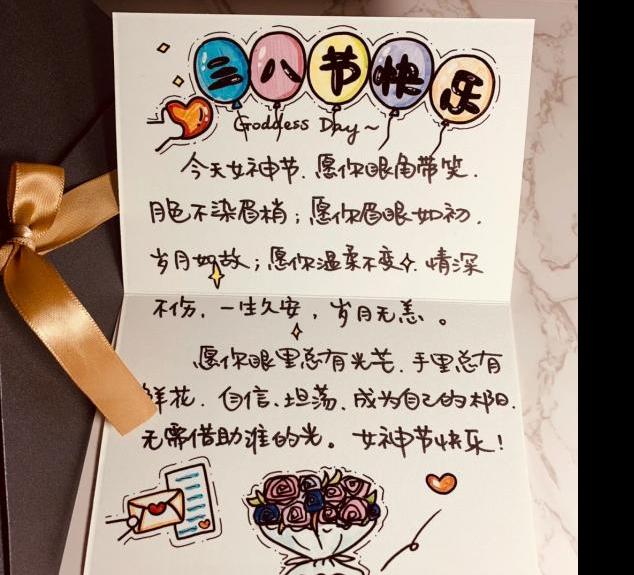 三八节快乐
Goddess Day~
今天女神节.愿你眼角带笑.
月色不染眉梢;愿你眉眼如初.
岁月如故;愿你温柔不变.情深
不伤,一生久安,岁月无恙。
愿你眼里总有光芒.手里总有
鲜花.自信、坦荡、成为自己的太阳.
无需借助谁的光。女神节快乐!